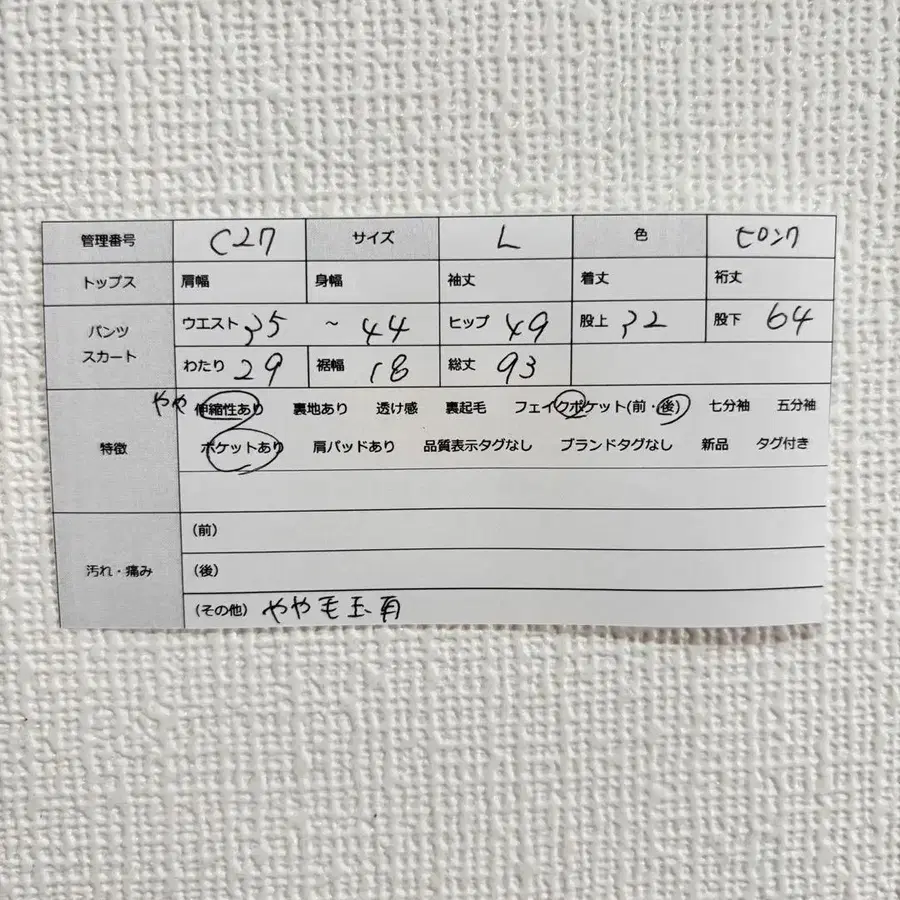 管理番号 C27 サイズ L 色 ピンク
トップス 肩幅 身幅 袖丈 着丈 裄丈
パンツ スカート ウエスト 35 ～ 44 ヒップ 49 股上 32 股下 64
わたり 29 裾幅 18 総丈 93
やや 伸縮性あり 裏地あり 透け感 裏起毛 フェイクポケット(前・後) 七分袖 五分袖
特徴 ポケットあり 肩パッドあり 品質表示タグなし ブランドタグなし 新品 タグ付き
(前)
汚れ・痛み (後)
(その他) やや毛玉有